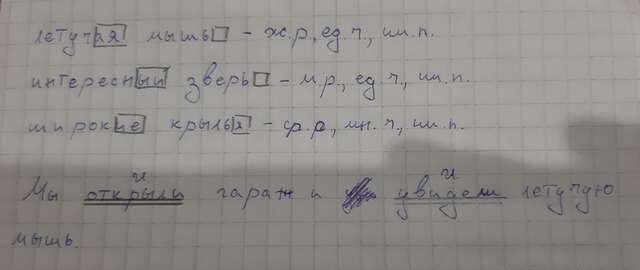 летучая мышь - ж.р., ед.ч., им.п.
интересный зверь - м.р., ед.ч., им.п.
широкие крылья - ср.р., мн.ч., им.п.
и и
Мы открыли гараж и увидели летучую
мышь.